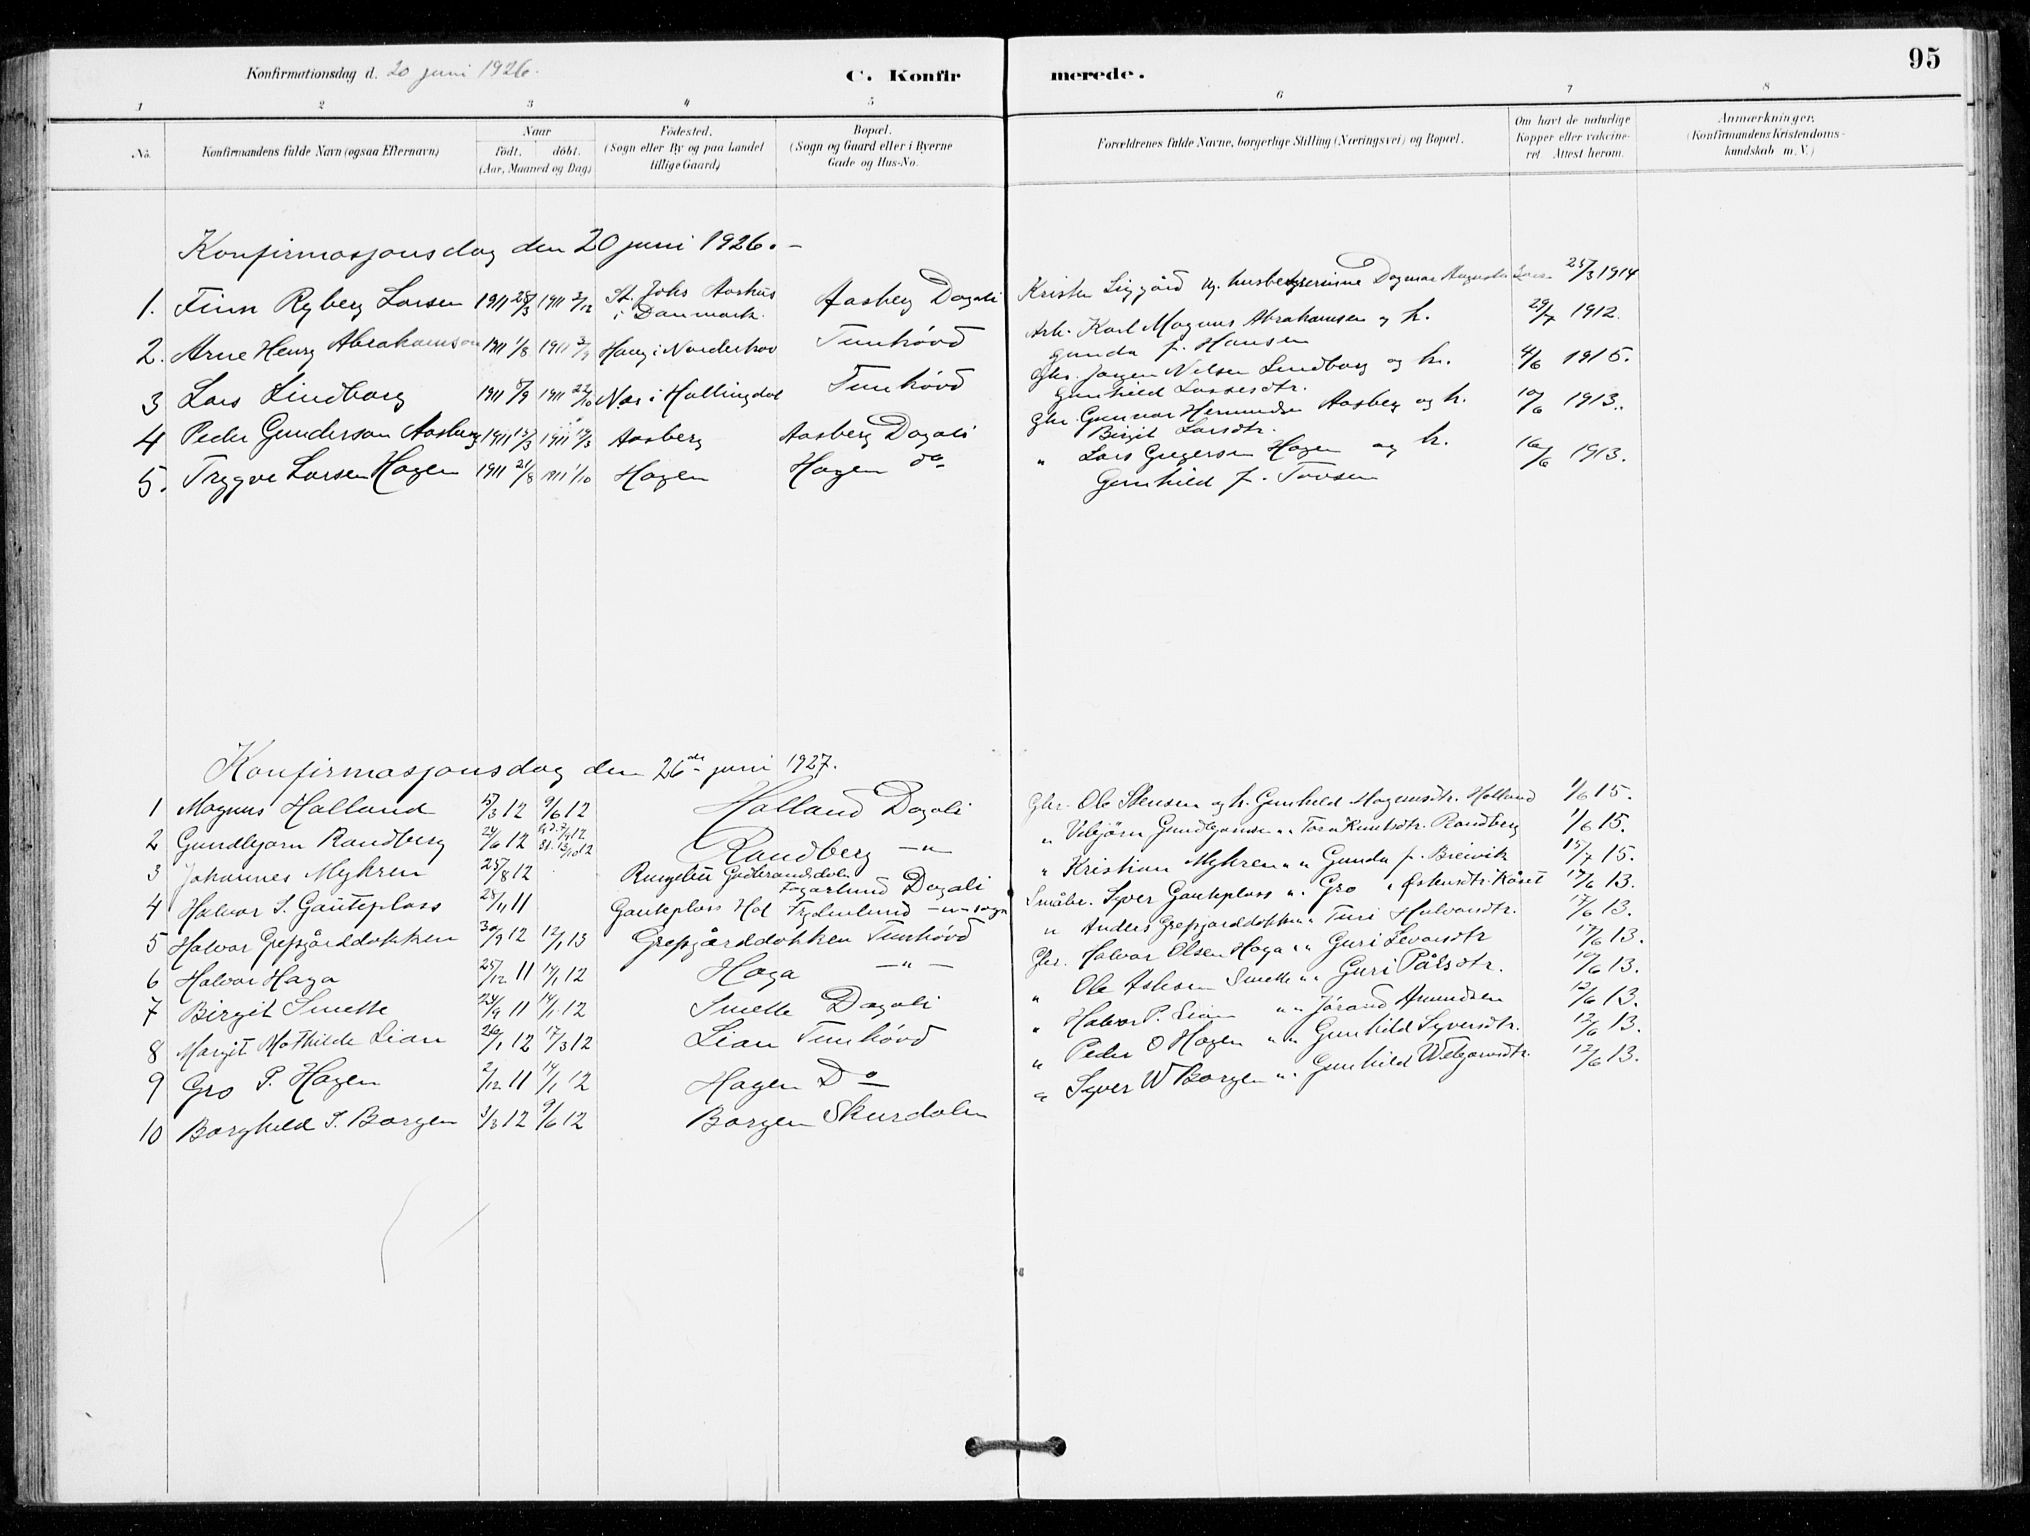 Konfirmationsdag d. 20 juni 1926.
C. Konfirmerede.
95
1 2 3 4 5 6 7 8
No.
Konfirmandens fulde Navn (ogsaa Efternavn)
Naar
födt. döbt.
(Aar, Maaned og Dag)
Födested.
(Sogn eller By og paa Landet
tillige Gaard)
Bopæl.
(Sogn og Gaard eller i Byerne
Gade og Hus-No.
Forældrenes fulde Navne, borgerlige Stilling (Næringsvei) og Bopæl.
Om havt de naturlige
Kopper eller vakcine-
ret Attest herom.
Anmærkninger.
(Konfirmandens Kristendoms-
kundskab m. V.)
Konfirmasjonsdag den 20 juni 1926. -
1. Finn Ryberg Larsen 1911 28/3 1911 3/12 St. Johs Aarhus i Danmark. Aasberg Dagali Kristen Liggård og husbestyrerinne Dagmar Augusta 25/3 1914
2. Arne Henry Abrahamson 1911 1/8 1911 3/9 Haug i Norderhov Tunhövd Arb. Karl Magnus Abrahamsen og h. Gunda f. Hansen 29/7 1912.
3 Lars Lindborg 1911 8/9 1911 22/10 Næs i Hallingdal Tunhövd Gbr. Jørgen Nilsen Lindborg og h. Gunhild Larsesdtr. 4/6 1915.
4 Peder Gunderson Aasberg 1911 17/3 1911 19/3 Aasberg Aasberg Dagali Gbr. Gunnar Hermundsen Aasberg og h. Birgit Larsdtr. 10/6 1913.
5. Trygve Larsen Hagen 1911 21/8 1911 1/10 Hagen Hagen do " Lars Gregersen Hagen og h. Gunhild f. Tovsen 16/6 1913.
Konfirmasjonsdag den 26de juni 1927.
1 Magnus Halland 15/3 12 9/6 12 Halland Dagali Gbr. Ole Stensen og h. Gunhild Magnusdtr. Halland 1/6 15.
2 Gundbjørn Randberg 24/6 12 G.d. 7/7 12 St. 13/10 12 Randberg -"- " Vebjörn Gundbjørnsen " " Tora Knutsdtr. Randberg 1/6 15.
3 Johannes Myhren 25/8 12 Ringebu Gudbrandsdalen Fagerlund Dagali " Kristian Myhren " " Gunda f. Breivik 15/7 15.
4 Halvor S. Gauteplass 25/11 11 Gauteplass Hol Frydenlund -"- sogn Småbr. Syver Gauteplass " " Gro " Østensdtr. Råset 17/6 13.
5 Halvor Grefsgårddokken 30/9 12 12/1 13 Grefsgårddokken Tunhövd " Anders Grefsgårddokken " Turi Halvorsdtr. 17/6 13.
6 Halvor Haga 25/12 11 14/1 12 Haga -"- Gbr. Halvor Olsen Haga " " Guri Levorsdtr 17/6 13.
7 Birgit Smette 23/9 11 14/1 12 Smette Dagali " Ole Asleson Smette " " Guri Pålsdtr. 10/6 13.
8 Margit Mathilde Lian 26/1 12 17/3 12 Lian Tunhövd " Halvor P. Lian " " Jörand Amundsen 12/6 13.
9 Gro P. Hagen 2/12 11 14/1 12 Hagen Do " Peder O Hagen " " Gunhild Syversdtr. 12/6 13.
10 Borghild S. Borgen 3/3 12 9/6 12 Borgen Skurdalen " Syver W Borgen " " Gunhild Webjørnsdtr. 12/6 13.